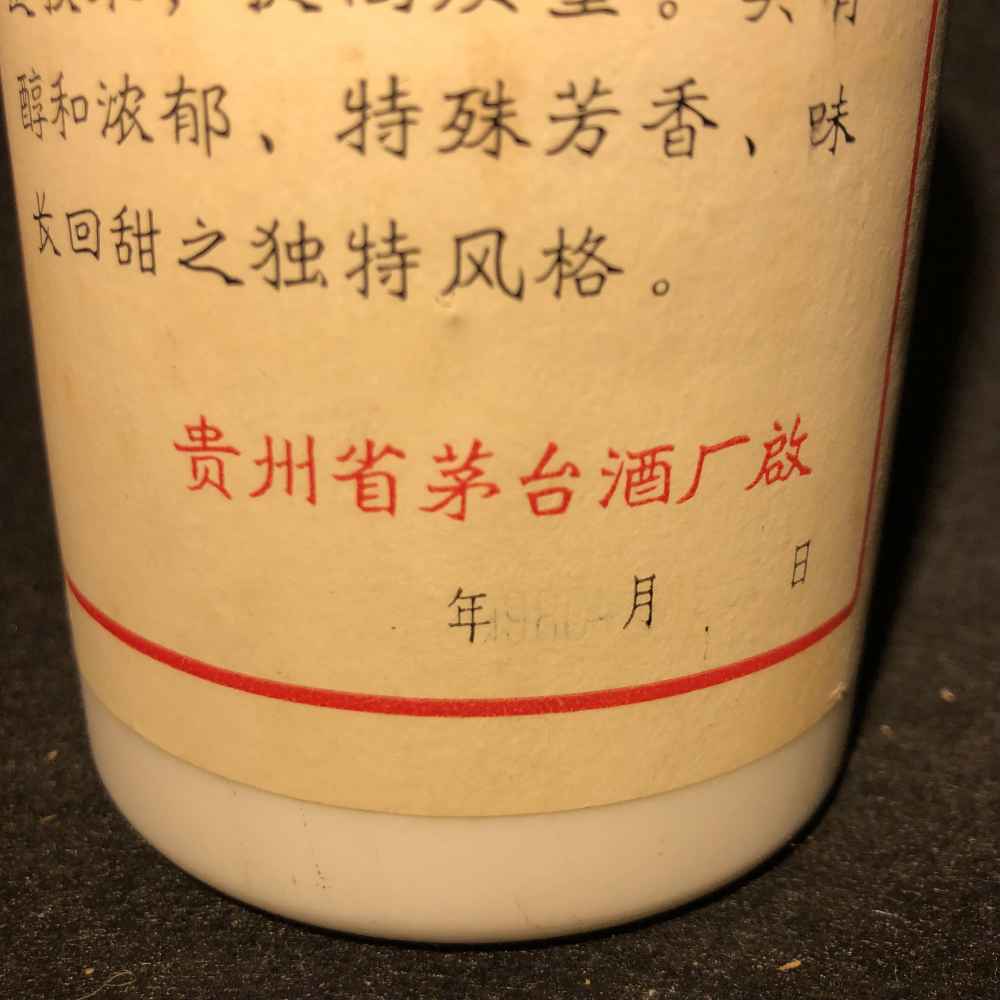 技术，提高质量。具有
醇和浓郁、特殊芳香、味
长回甜之独特风格。
贵州省茅台酒厂啟
年 月 日